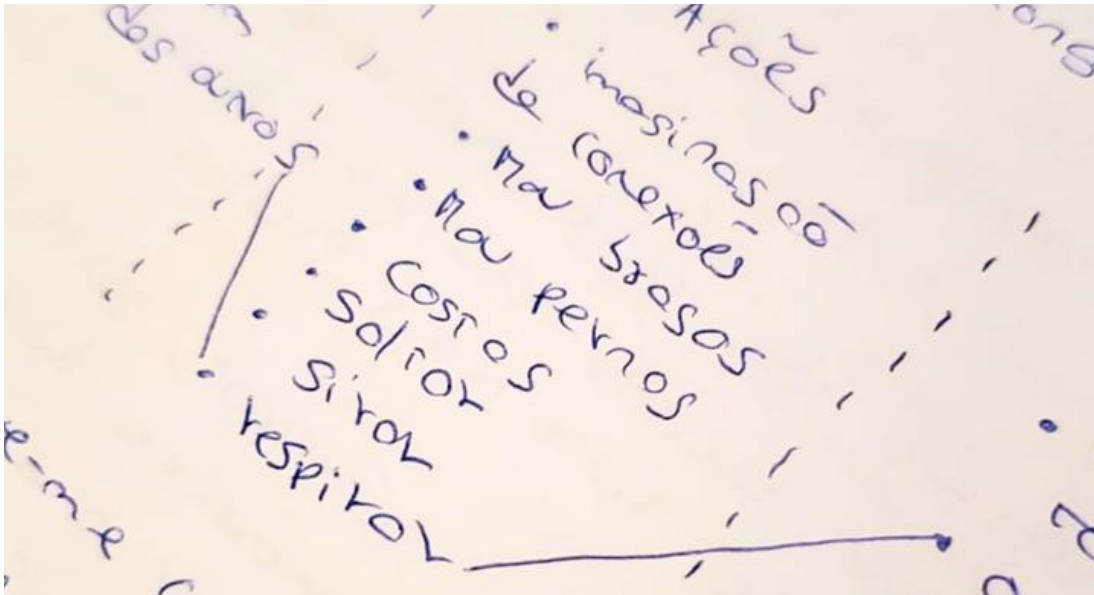 dos anos
Ações
• imaginação
de conexões
• Mar brasas
• Mar pernos
• Costas
• Soltar
• Sirar
• respirar
e-me